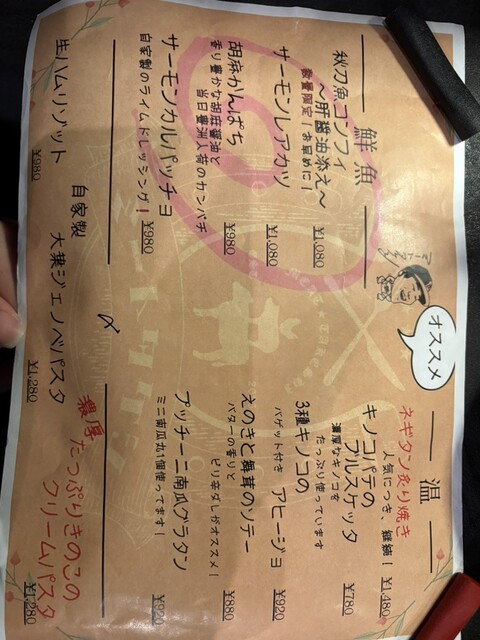 オススメ
鮮魚
秋刀魚コンフィ
〜肝醤油添え〜
数量限定！お早めに！
¥1,080
サーモンレアカツ
¥1,080
胡麻かんぱち
香り豊かな胡麻醤油と
当日豊洲入荷のカンパチ
¥980
サーモンカルパッチョ
自家製のライムドレッシング！
¥980
温
ネギタン炙り焼き
人気につき、継続！
¥1,480
キノコパテの
ブルスケッタ
濃厚なキノコを
たっぷり使っています
¥780
3種キノコの
アヒージョ
バゲット付き
¥920
えのきと舞茸のソテー
バターの香りと
ピリ辛ダしがオススメ！
¥880
プッチーニ南瓜グラタン
ミニ南瓜丸1個使ってます！
¥920
〆
生ハムリゾット
¥980
自家製
大葉ジェノベパスタ
¥1,280
濃厚
たっぷりきのこの
クリームパスタ
¥1,280